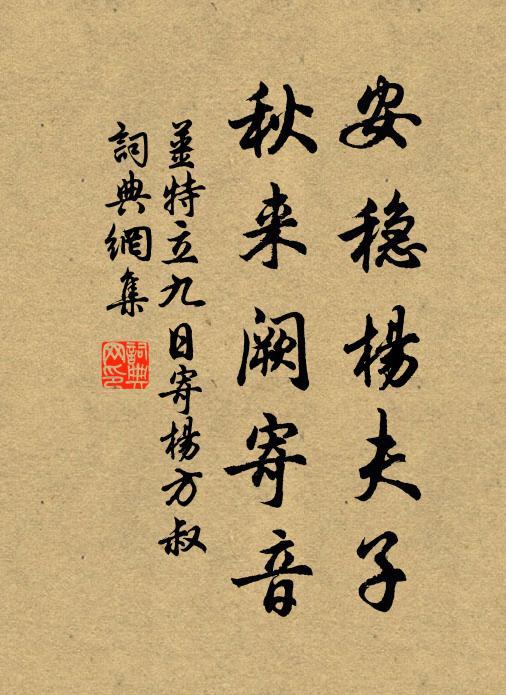 安稳楊夫子
秋来阙寄音
薑特立九日寄楊方叔
詞典網集
詞典网印